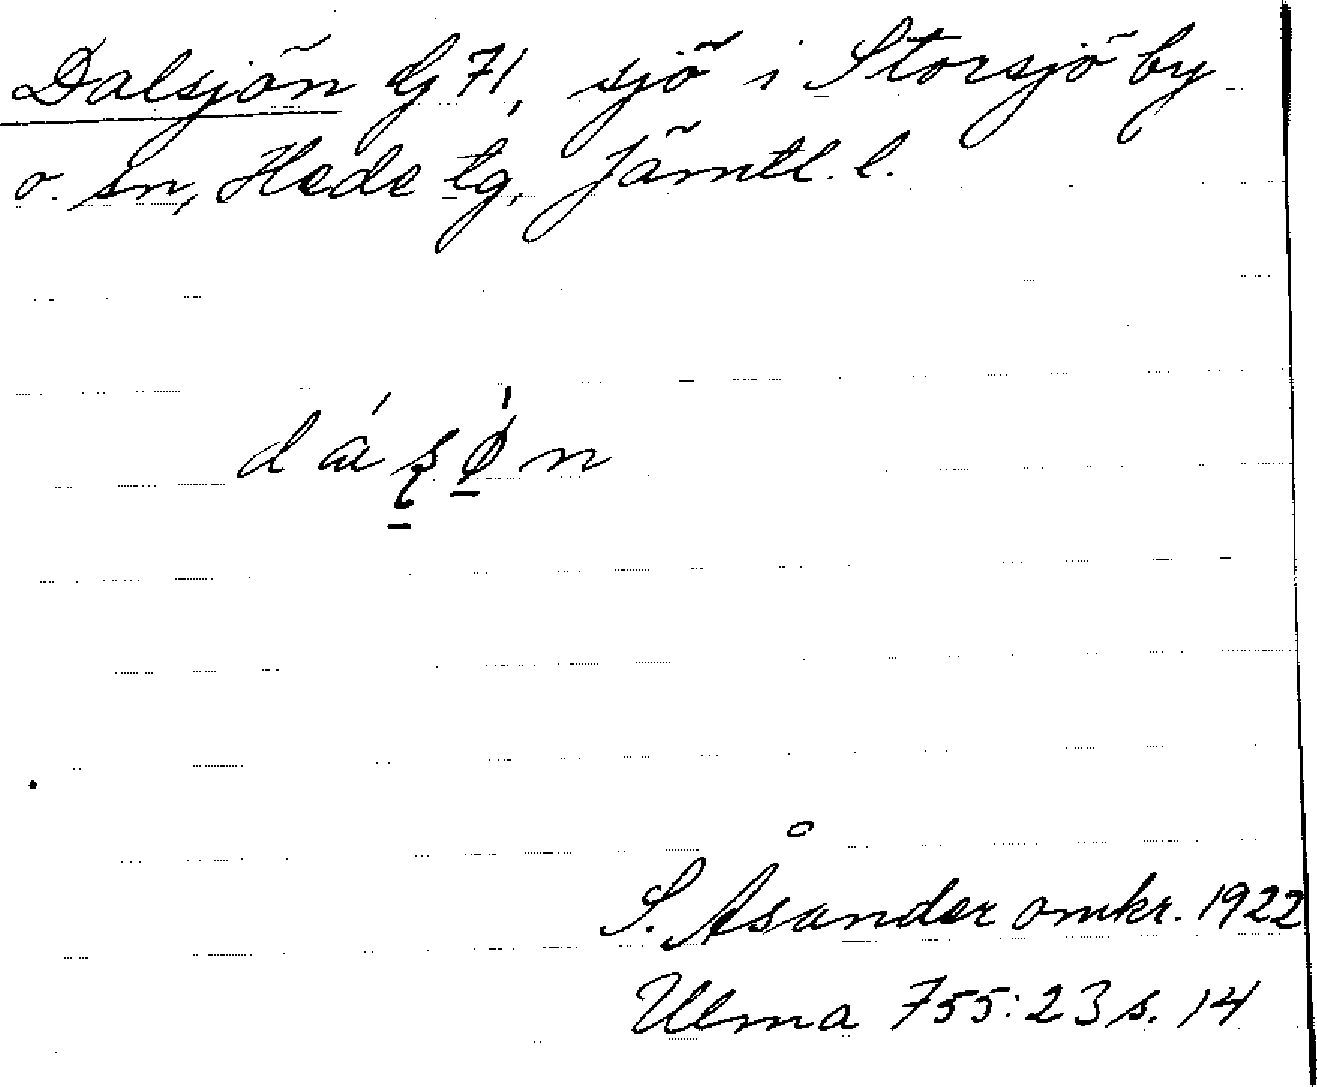 Dalsjön G 71, sjö i Storsjö by
o. sn, Hede tg, Jämtl. l.
S. Åsander omkr. 1922
Ulma 755:23 s. 14